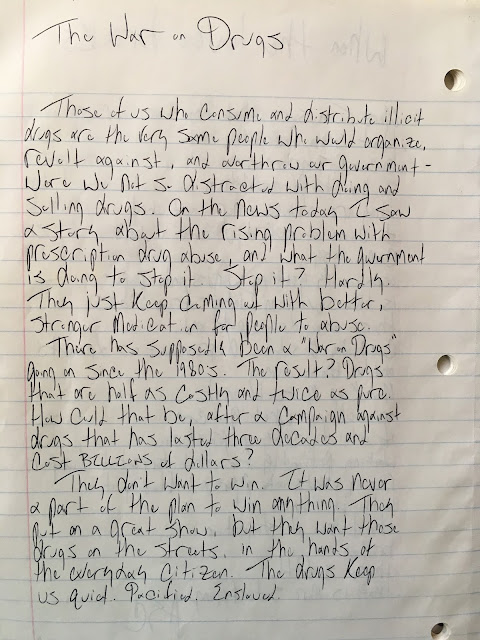 The War on Drugs
Those of us who consume and distribute illicit
drugs are the very same people who would organize,
revolt against, and overthrow our government -
were we not so distracted with doing and
selling drugs. On the news today I saw
a story about the rising problem with
prescription drug abuse, and what the government
is doing to stop it. Stop it? Hardly.
They just keep coming out with better,
stronger medication for people to abuse.
There has supposedly been a "War on Drugs"
going on since the 1980's. The result? Drugs
that are half as costly and twice as pure.
How could that be, after a campaign against
drugs that has lasted three decades and
cost BILLIONS of dollars?
They don't want to win. It was never
a part of the plan to win anything. They
put on a great show, but they want those
drugs on the streets, in the hands of
the everyday citizen. The drugs keep
us quiet. Pacified. Enslaved.